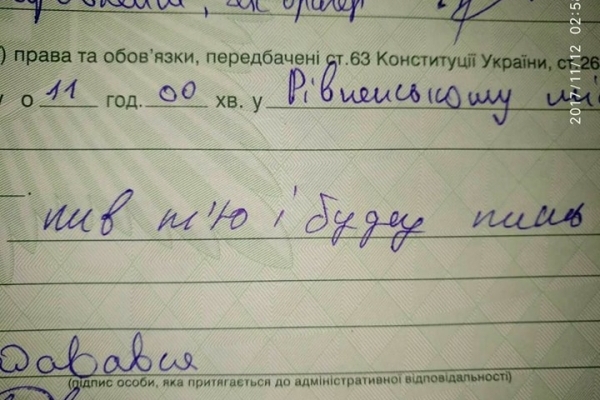 ) права та обов'язки, передбачені ст.63 Конституції України, ст.26
у о 11 год. 00 хв. у Рівненському
пив п'ю і буду пить
(підпис особи, яка притягається до адміністративної відповідальності)
2017/11/12 02:5